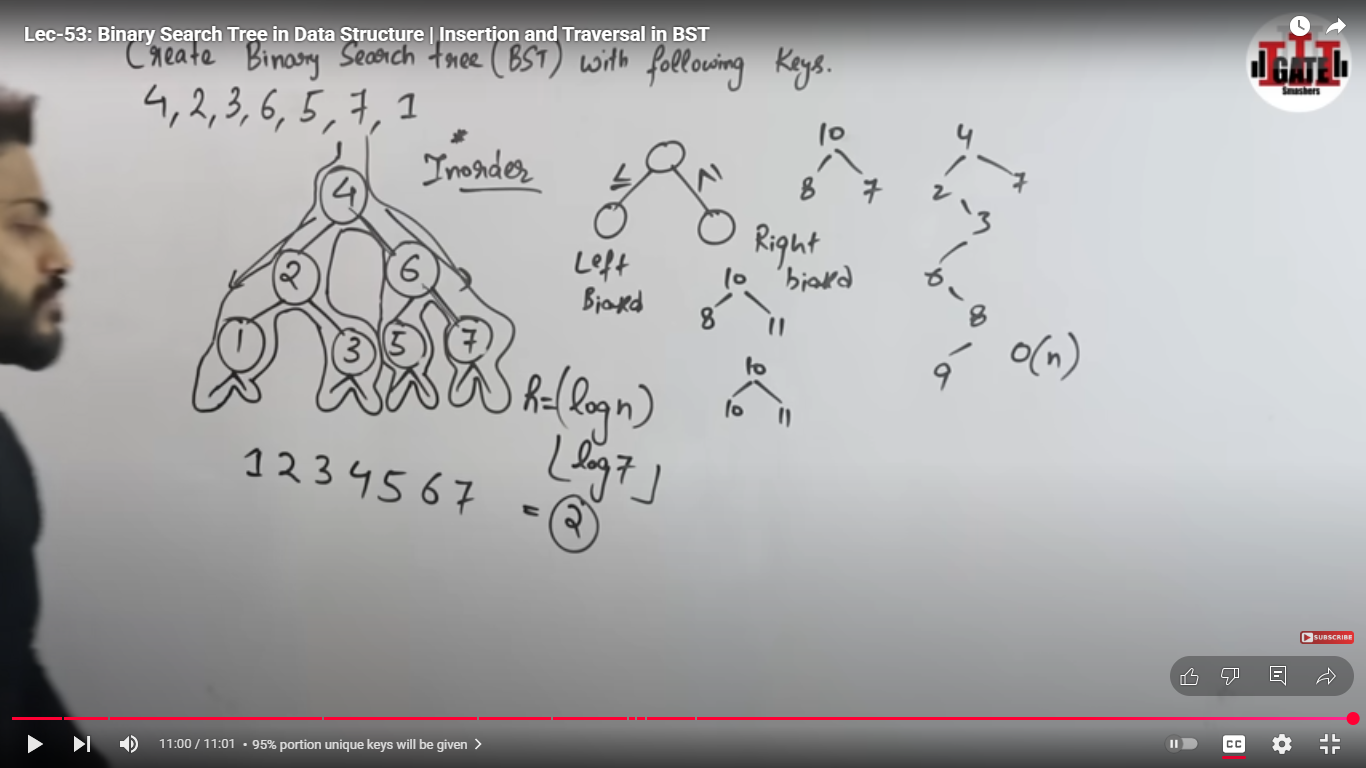 Lec-53: Binary Search Tree in Data Structure | Insertion and Traversal in BST
Create Binary Search tree (BST) with following Keys.
4, 2, 3, 6, 5, 7, 1
GATE
Smashers
Inorder
4
2 6
1 3 5 7
1 2 3 4 5 6 7
h=(log n)
⌊log 7⌋
= 2
≤ >
Left
Right
biased
10
8 7
10
8 11
10
10 11
4
2 7
3
6
8
9
O(n)
SUBSCRIBE
11:00 / 11:01 • 95% portion unique keys will be given >
CC